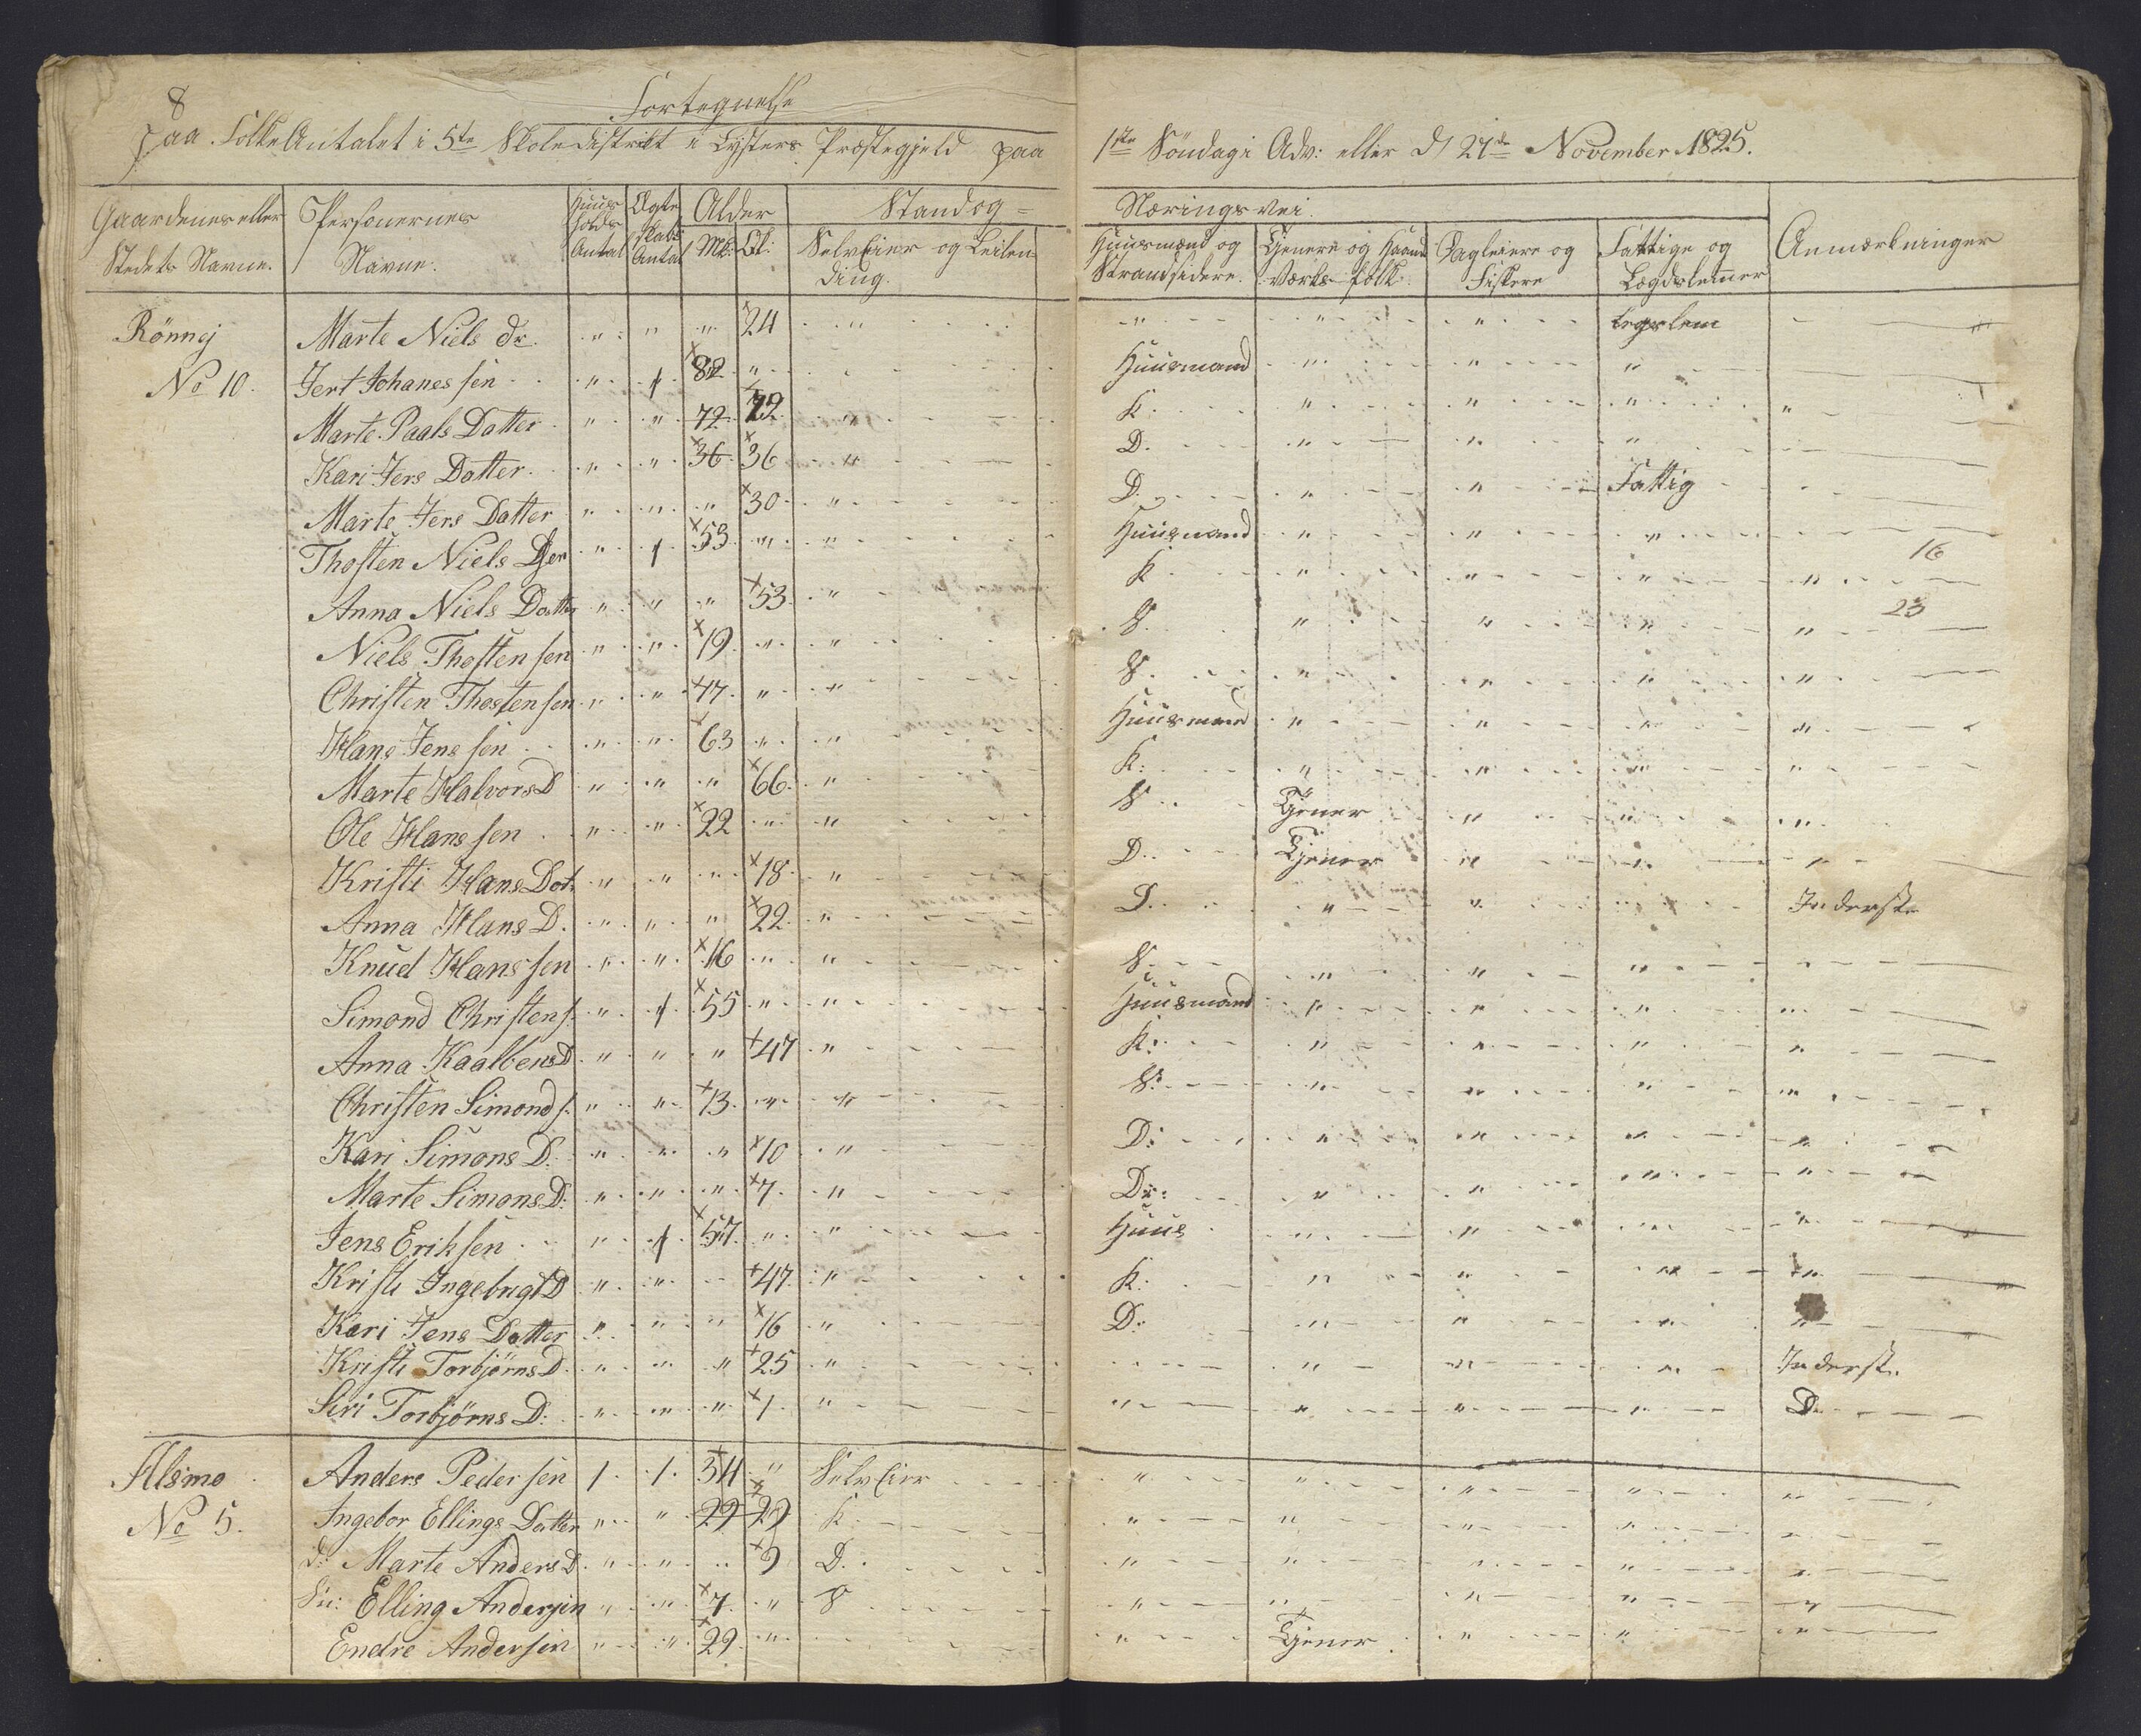 8
Fortegnelse
paa FolkeAntalet i 5te Skoledistrikt i Lysters Præstegjeld paa 1ste Söndag i Adv: eller d 27de November 1825.
Gaardenes eller Stedets Navne. | Personernes Navne. | Huusholds Antal | Ægteskabs Antal | Alder Mk: Qk: | Stand og = Næringsvei.
SelvEier og Leilending. | Huusmænd og Strandsidere. | Tjenere og Haandværks folk | Dagleiere og Fiskere | Fattige og Lægdslemmer | Anmærkninger
Rönnej Marte Niels Dr. " " " 24 " " " " legslem
No 10. Jert Johanes sen " 1 82 " Huusmand " " "
Marte Paals Datter " " 72 72 " K " " " "
Kari Jers Datter " " 36 36 " D. " " "
Marte Jers Datter " " " 30 " D. " " Fattig
Thosten Niels Ssen " 1 53 " " Huusmand " " " 16
Anna Niels Datter " " " 53 " K " " " "
Niels Thosten sen " " 19 " " S. " " " " 23
Christen Thosten sen " " 17 " " S. " " " "
Hans Jens sen " " 63 " " Huusmand " " " "
Marte Halvors D " " " 66 " K: " " " "
Ole Hans sen " " 22 " " S Tjener " " "
Kristi Hans Dot " " " 18 " D. Tjener " " "
Anna Hans D. " " " 22 " D. " " " Inderste
Knud Hans sen " " 16 " " S " " "
Simond Christen s. " 1 55 " " Huusmand " " " "
Anna Kaalbens D " " " 47 " K: " " " "
Christen Simond s. " " 13 " " S: " " " "
Kari Simons D. " " " 10 " D: " " " "
Marte Simons D: " " " 7 " Dr: " " " "
Jens Erik sen " 1 57 " " Huus " " " "
Kristi Ingebrigt D " " 47 " K: " " " "
Kari Jens Datter " " " 16 " D: " " " "
Kristi Torbjörns D. " " " 25 " " " " Inderst.
Siri Torbjörns D: " " " 1 " " " " " D.
Alsmo Anders Peder sen 1 1 34 " SelvEier " " " " "
No 5. Ingebor Ellings Datter " " 29 29 K " " " " "
d: Marte Anders D. " " " 9 D. " " " " "
Sn: Elling Andersen " " 7 " S " " " " "
Endre Andersen " " 29 " " Tjener " " "